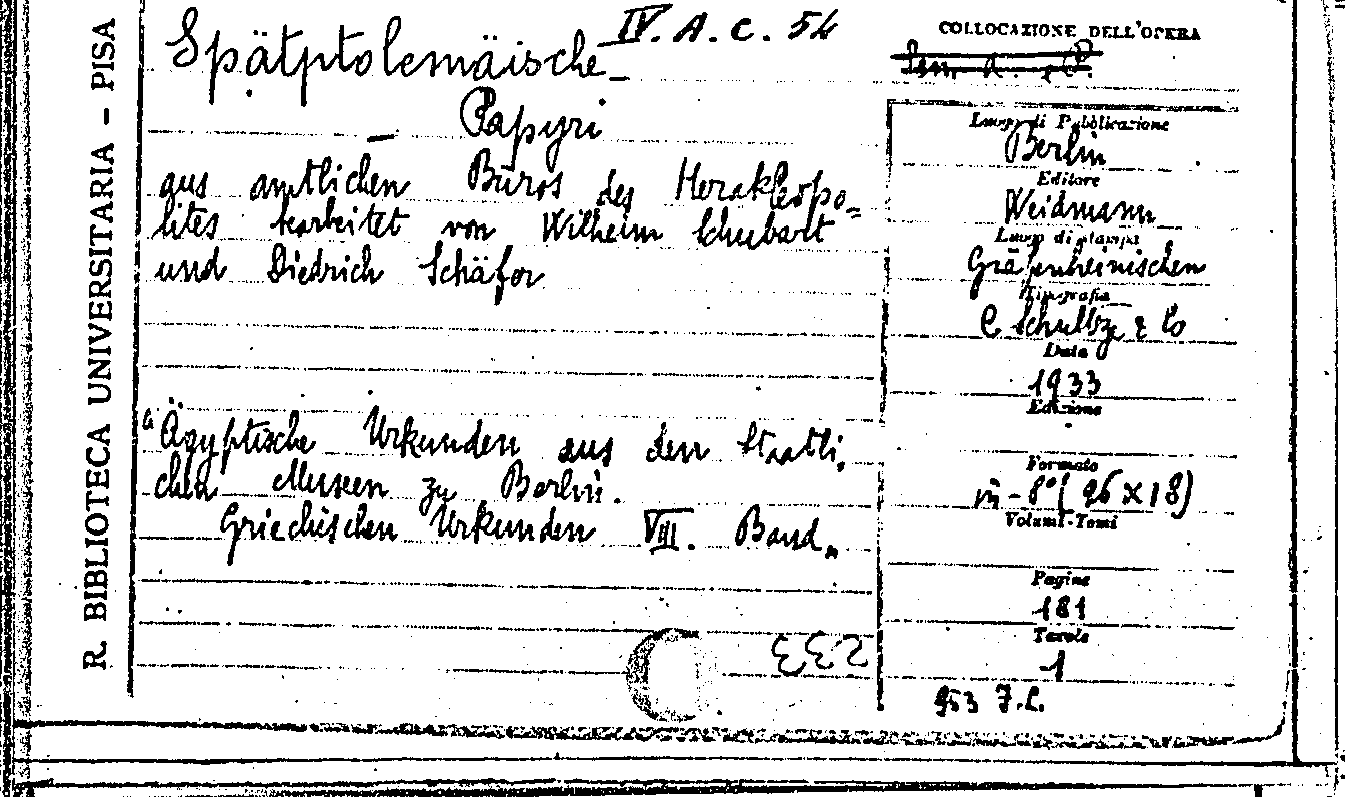 R. BIBLIOTECA UNIVERSITARIA - PISA
IV. A. C. 54
Spätptolemäische
Papyri
aus amtlichen Büros des Herakleopo=
lites bearbeitet von Wilhelm Schubart
und Diedrich Schäfer
"Ägyptische Urkunden aus den Staatli-
chen Museen zu Berlin.
Griechischen Urkunden VIII. Band"
233
COLLOCAZIONE DELL'OPERA
Luogo di Pubblicazione
Berlin
Editore
Weidmann
Luogo di stampa
Gräfenheinischen
Tipografia
C Schultze & Co
Data
1933
Edizione
Formato
in-8° (26 x 18)
Volumi-Tomi
Pagine
181
Tavole
1